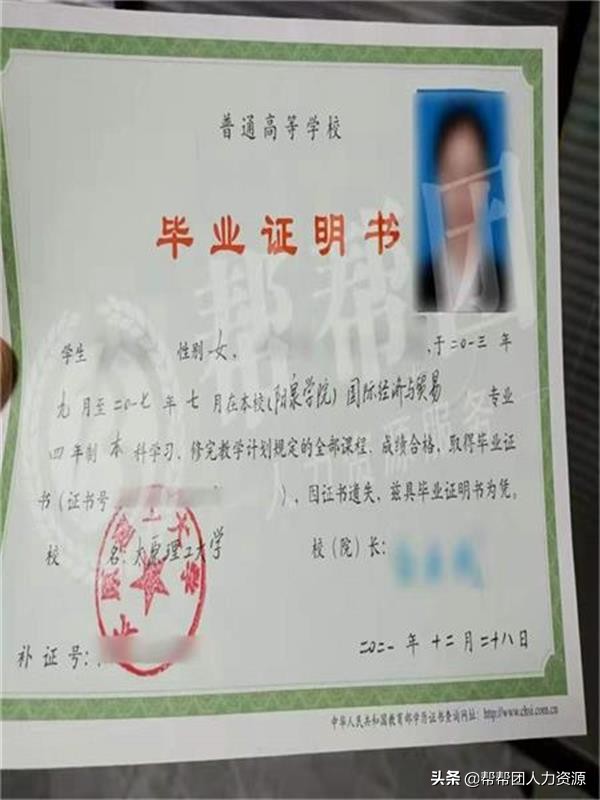 普通高等学校
毕业证明书
学生 性别 女, , 于二〇一三年
九月至二〇一七年七月在本校(阳泉学院)国际经济与贸易 专业
四年制本科学习,修完教学计划规定的全部课程,成绩合格,取得毕业证
书(证书号 ),因证书遗失,兹具毕业证明书为凭。
校 名:太原理工大学 校(院)长:
补证号: 二〇二一年十二月二十八日
中华人民共和国教育部学历证书查询网址:http://www.chsi.com.cn
帮帮团
人力资源服务
头条 @帮帮团人力资源